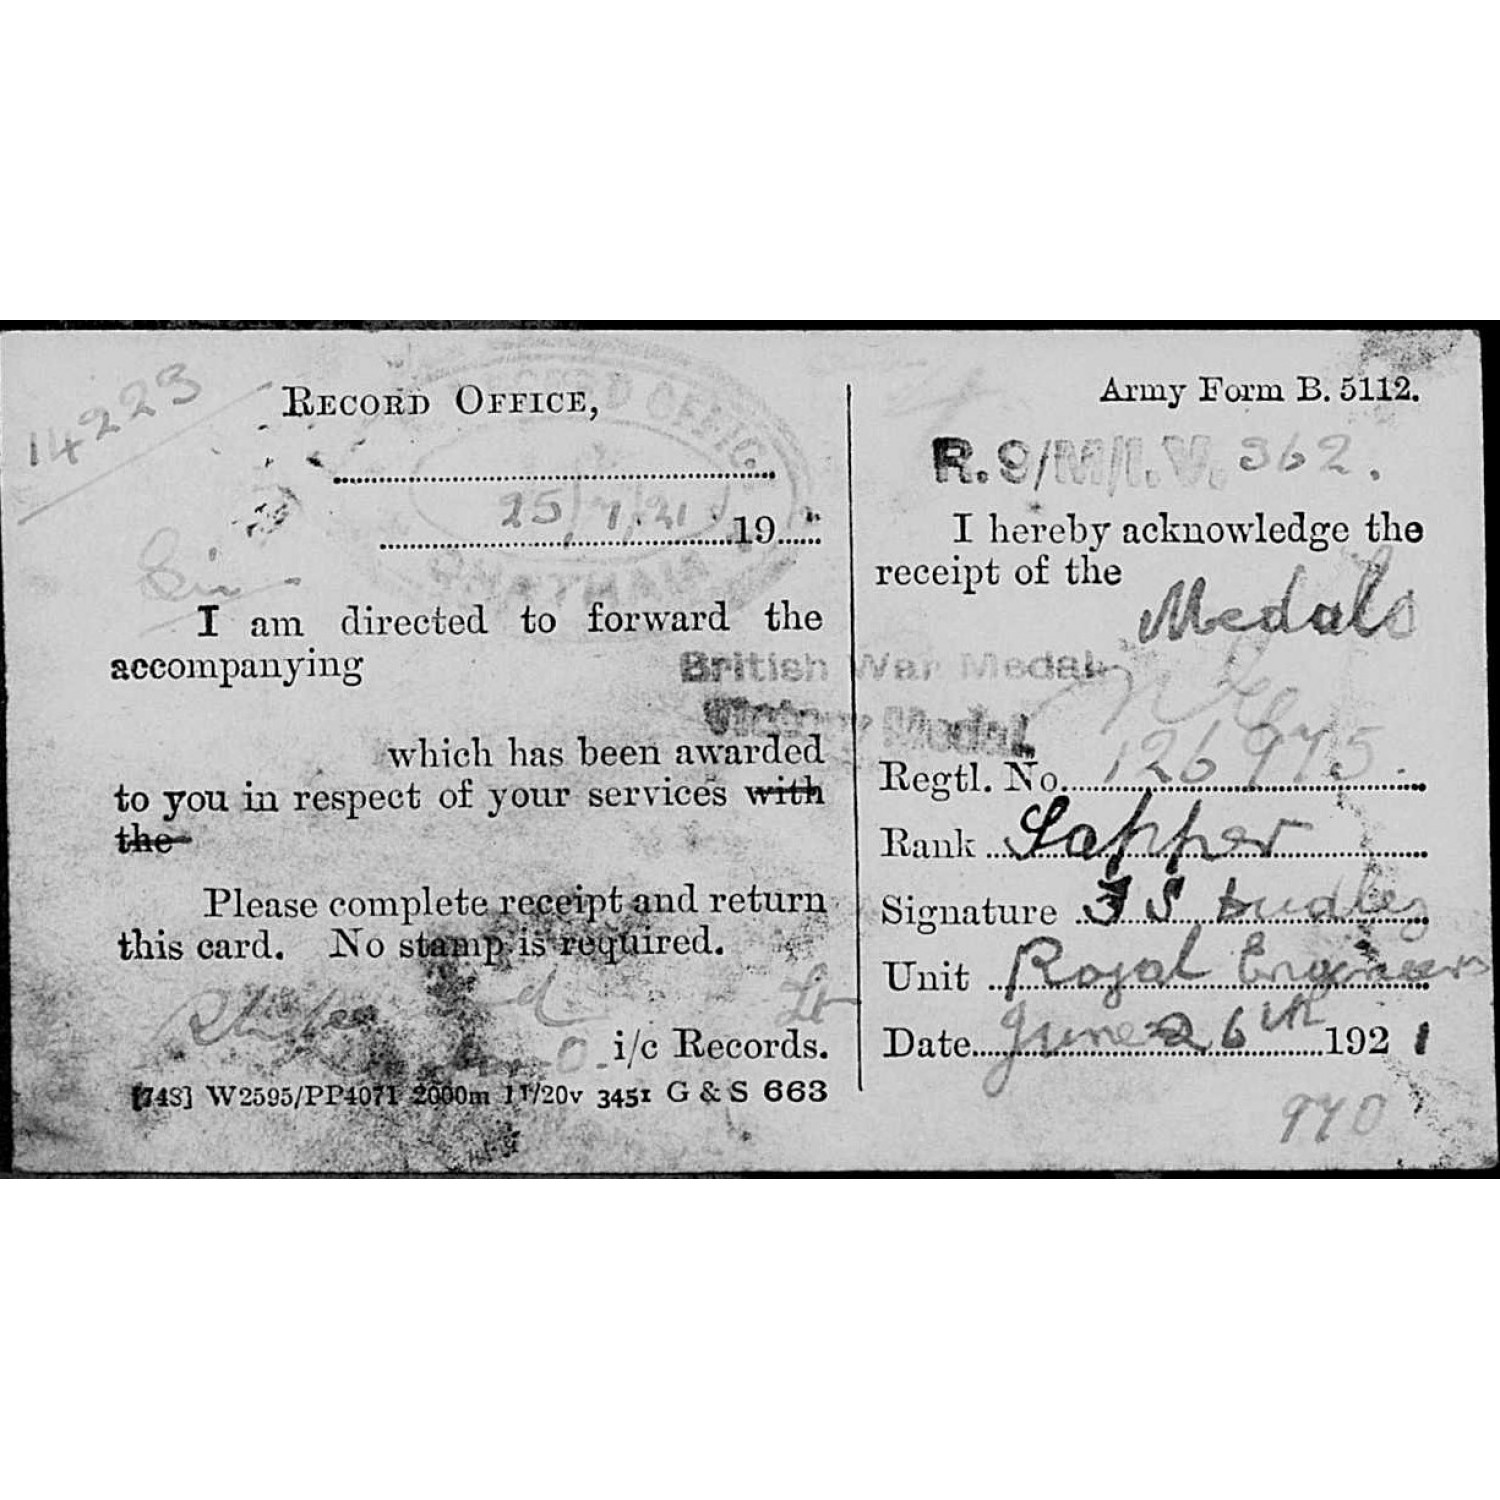 14223
RECORD OFFICE,
RECORD OFFICE
25/7/21 19
CHATHAM
Sir
I am directed to forward the
accompanying
British War Medal
Victory Medal
which has been awarded
to you in respect of your services with
the
Please complete receipt and return
this card. No stamp is required.
Lt
i/c Records.
[74S] W2595/PP4071 2000m 11/20v 3451 G & S 663
Army Form B. 5112.
R.9/M/I.V. 362.
I hereby acknowledge the
receipt of the
Medals
Regtl. No. 126975.
Rank Sapper
Signature F S Dudley
Unit Royal Engineers
Date June 26th 1921
970